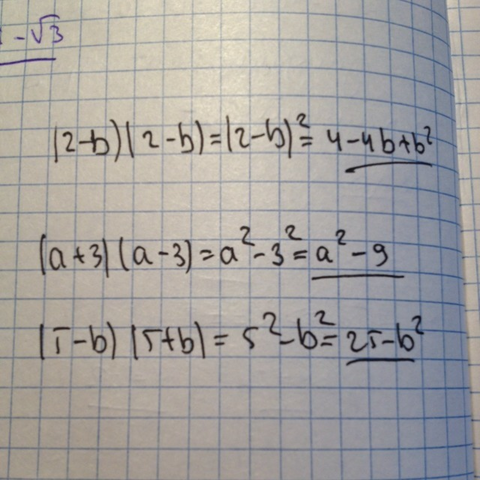 -√3
(2-b)(2-b)=(2-b)²=4-4b+b²
(a+3)(a-3)=a²-3²=a²-9
(5-b)(5+b)=5²-b²=25-b²